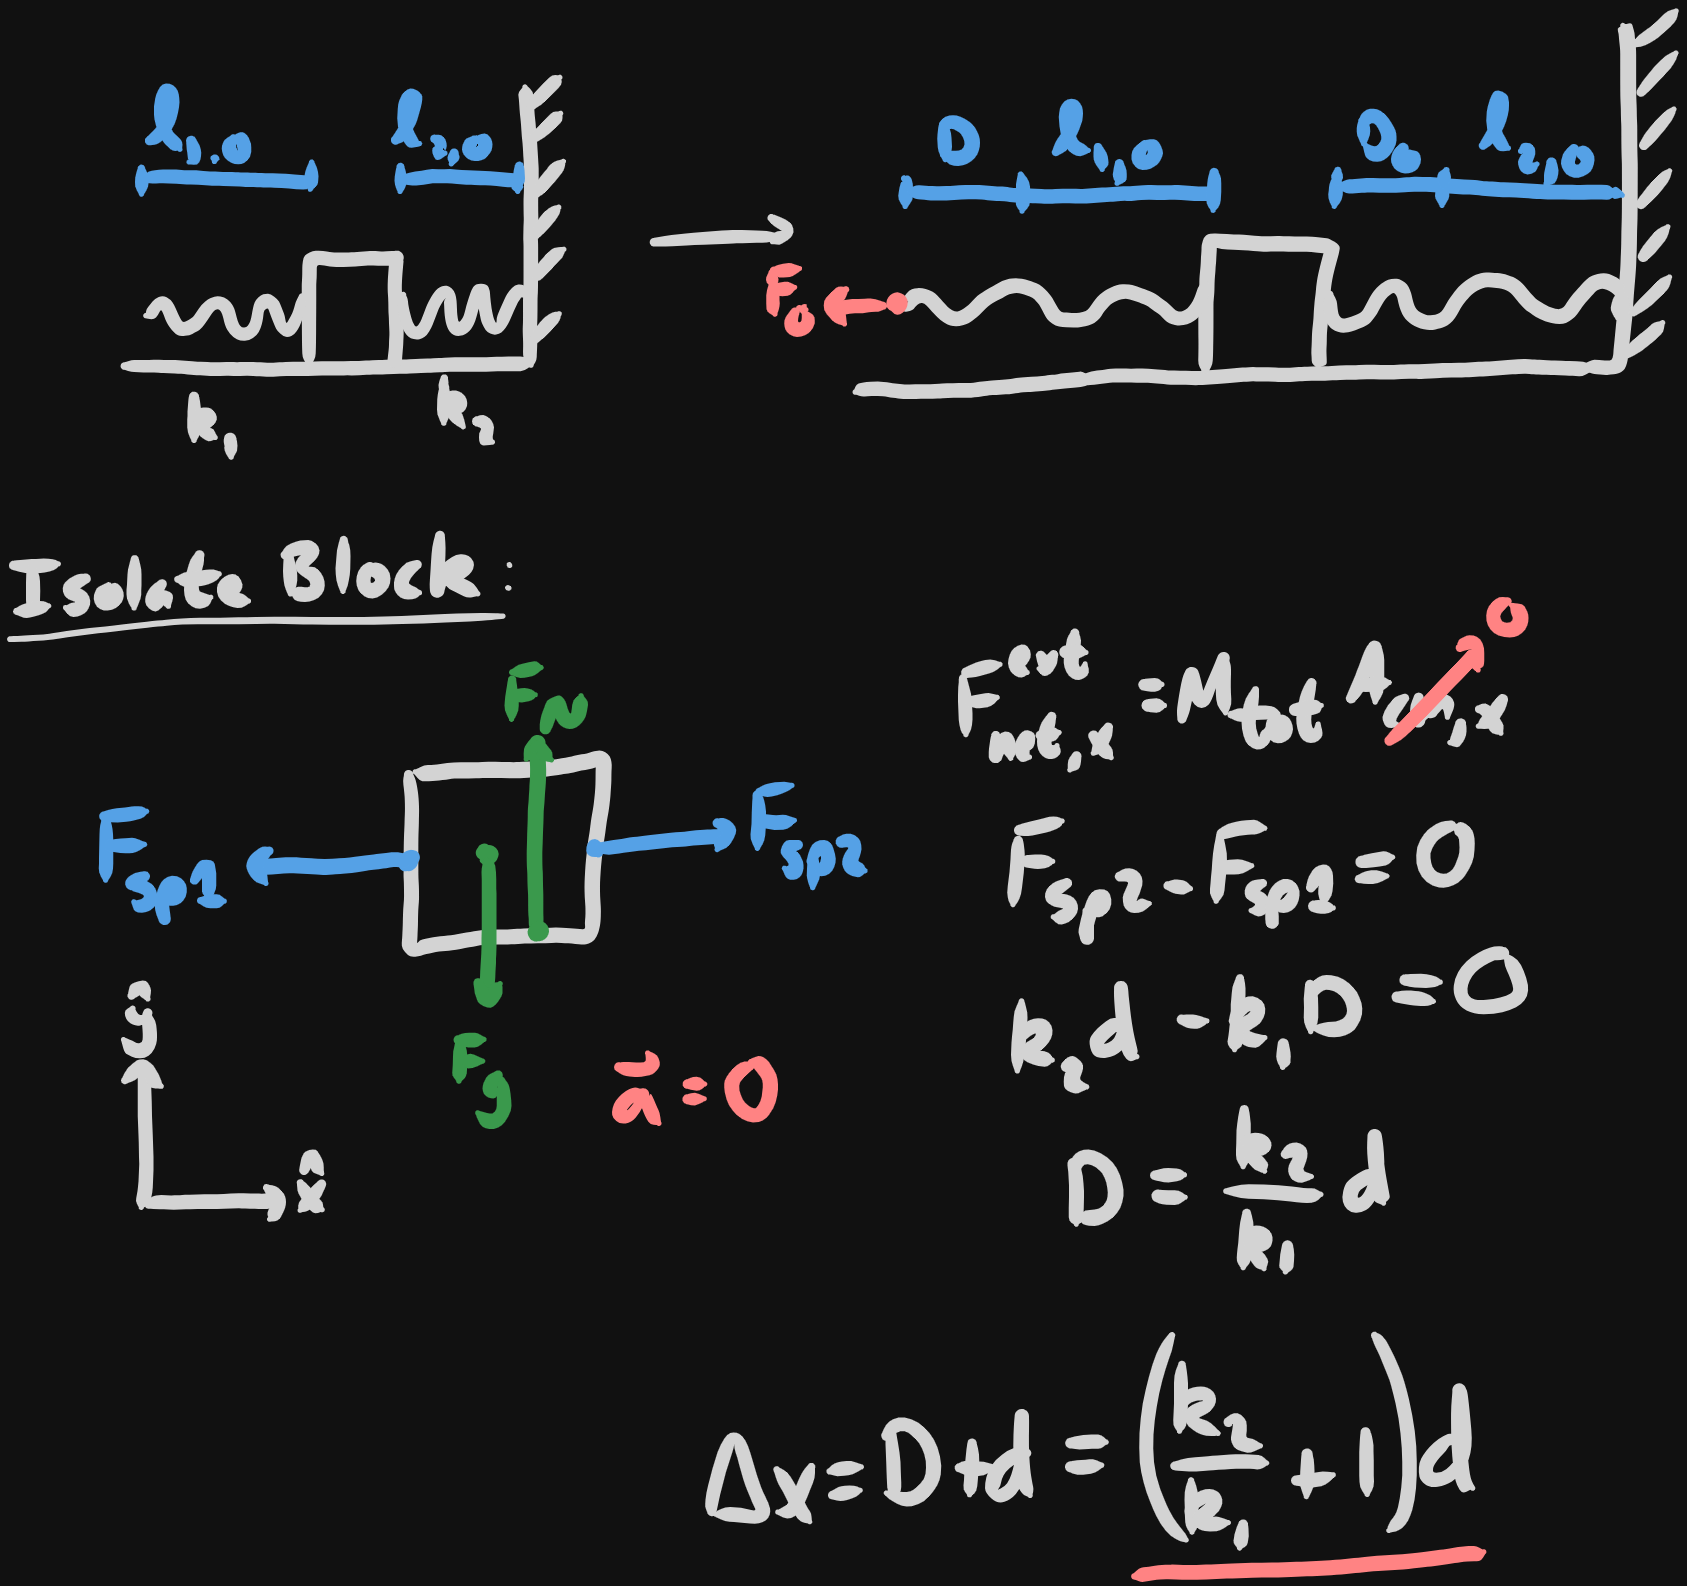 l₁,₀ l₂,₀ D l₁,₀ D₀ l₂,₀
F₀
k₁ k₂
Isolate Block:
F_N
F_sp1 F_sp2
F_g
ŷ
x̂
ã = 0
F^ext_net,x = M_tot A_cm,x 0
F_sp2 - F_sp1 = 0
k₂d - k₁D = 0
D = k₂/k₁ d
Δx = D+d = (k₂/k₁ + 1)d